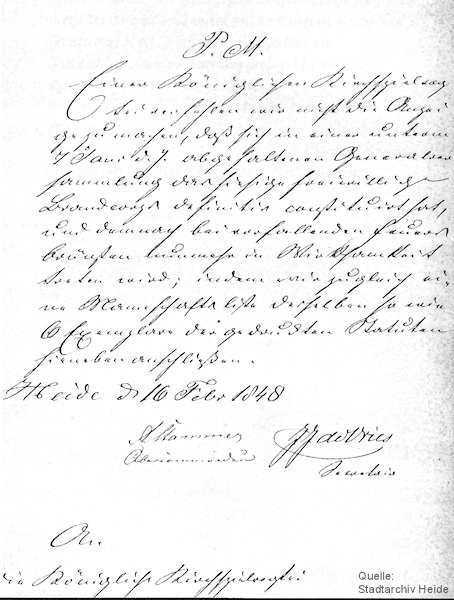 P. M.
Einer Königlichen Kirchspielvog
tei verfehlen wir nicht die Anzei
ge zu machen, daß sich in einer unterm
7 Jan: d. J. abgehaltenen Generalver
sammlung das hiesige freiwillige
Brandcorps definitiv constituirt hat,
und demnach bei vorfallenden Feuers
brünsten nunmehr in Wirksamkeit
treten wird; indem wir zugleich ei
ne Mannschaftsliste desselben so wie
6 Exemplare der gedruckten Statuten
hieneben anschließen.
Heide d 16 Febr 1848
Secretair
An
die Königliche Kirchspielvogtei
Quelle:
Stadtarchiv Heide